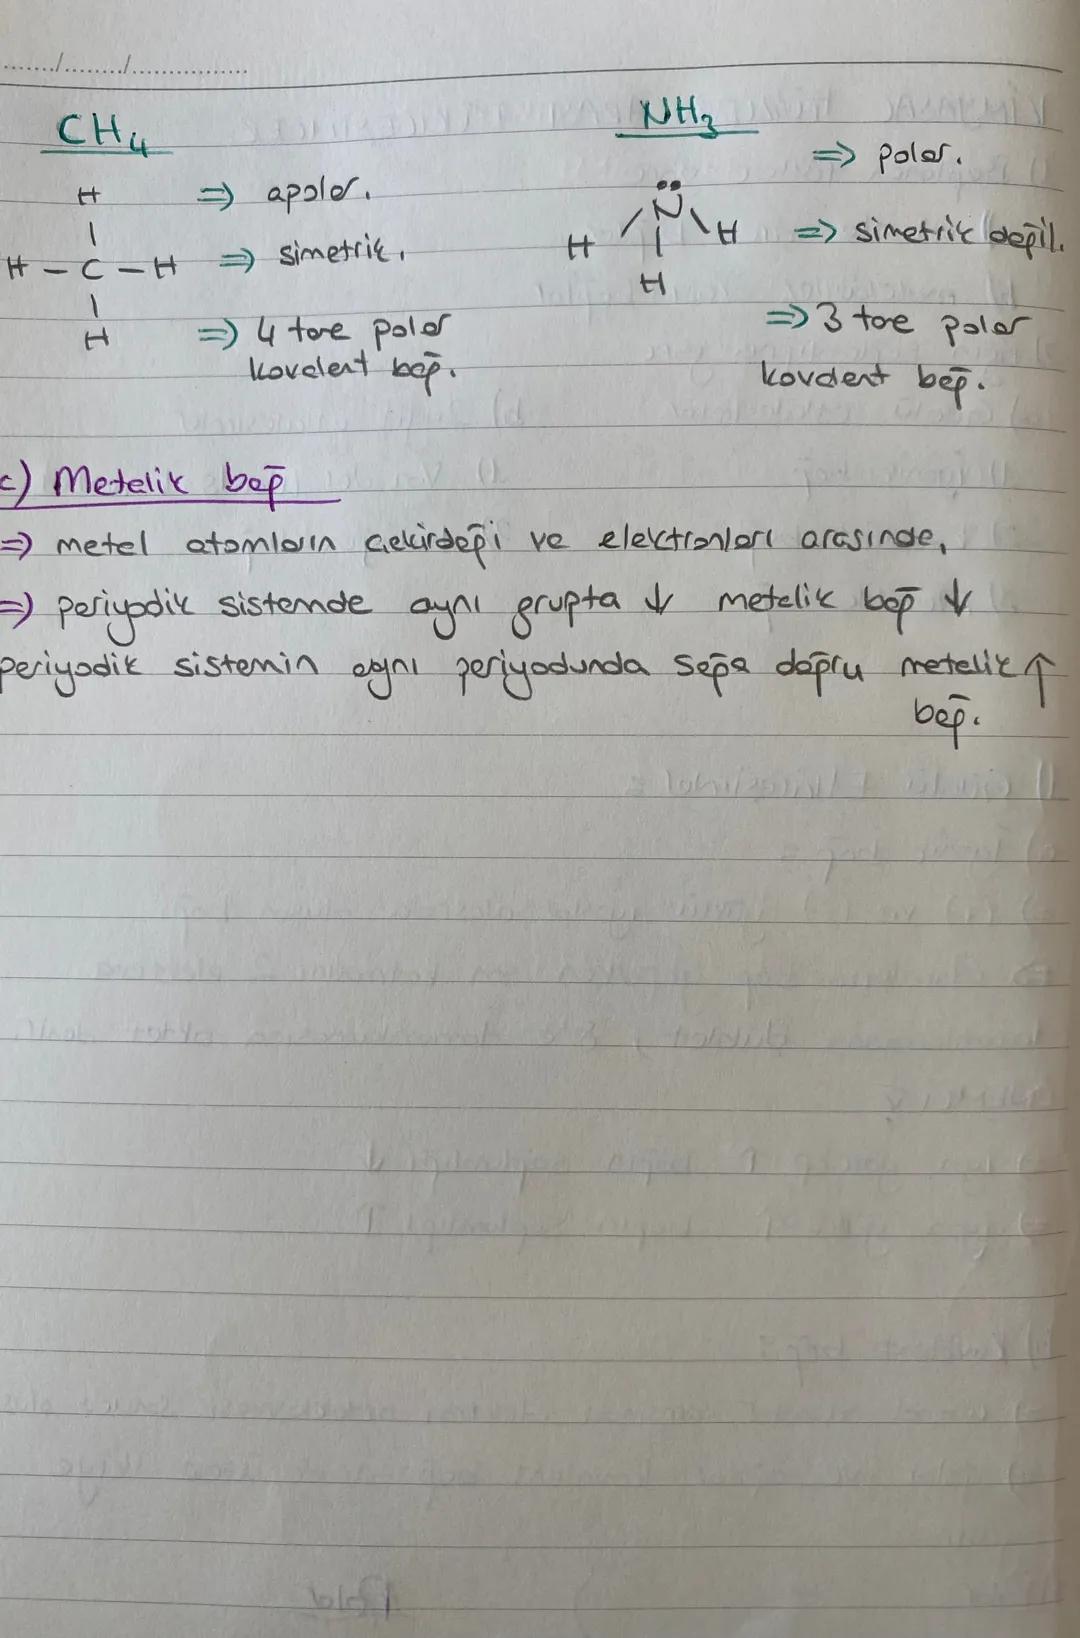 CH4
H
H - C - H
H
⇒ apolar.
⇒ simetrik.
⇒ 4 tane polar
kovalent bağ.
NH3
N
H H
H
⇒ polar.
⇒ simetrik değil.
⇒ 3 tane polar
kovalent bağ.
c) Metalik bağ
⇒ metal atomların çekirdeği ve elektronları arasında,
⇒ periyodik sistemde aynı grupta ↓ metalik bağ ↓
periyodik sistemin aynı periyodunda sağa doğru metalik ↑
bağ.